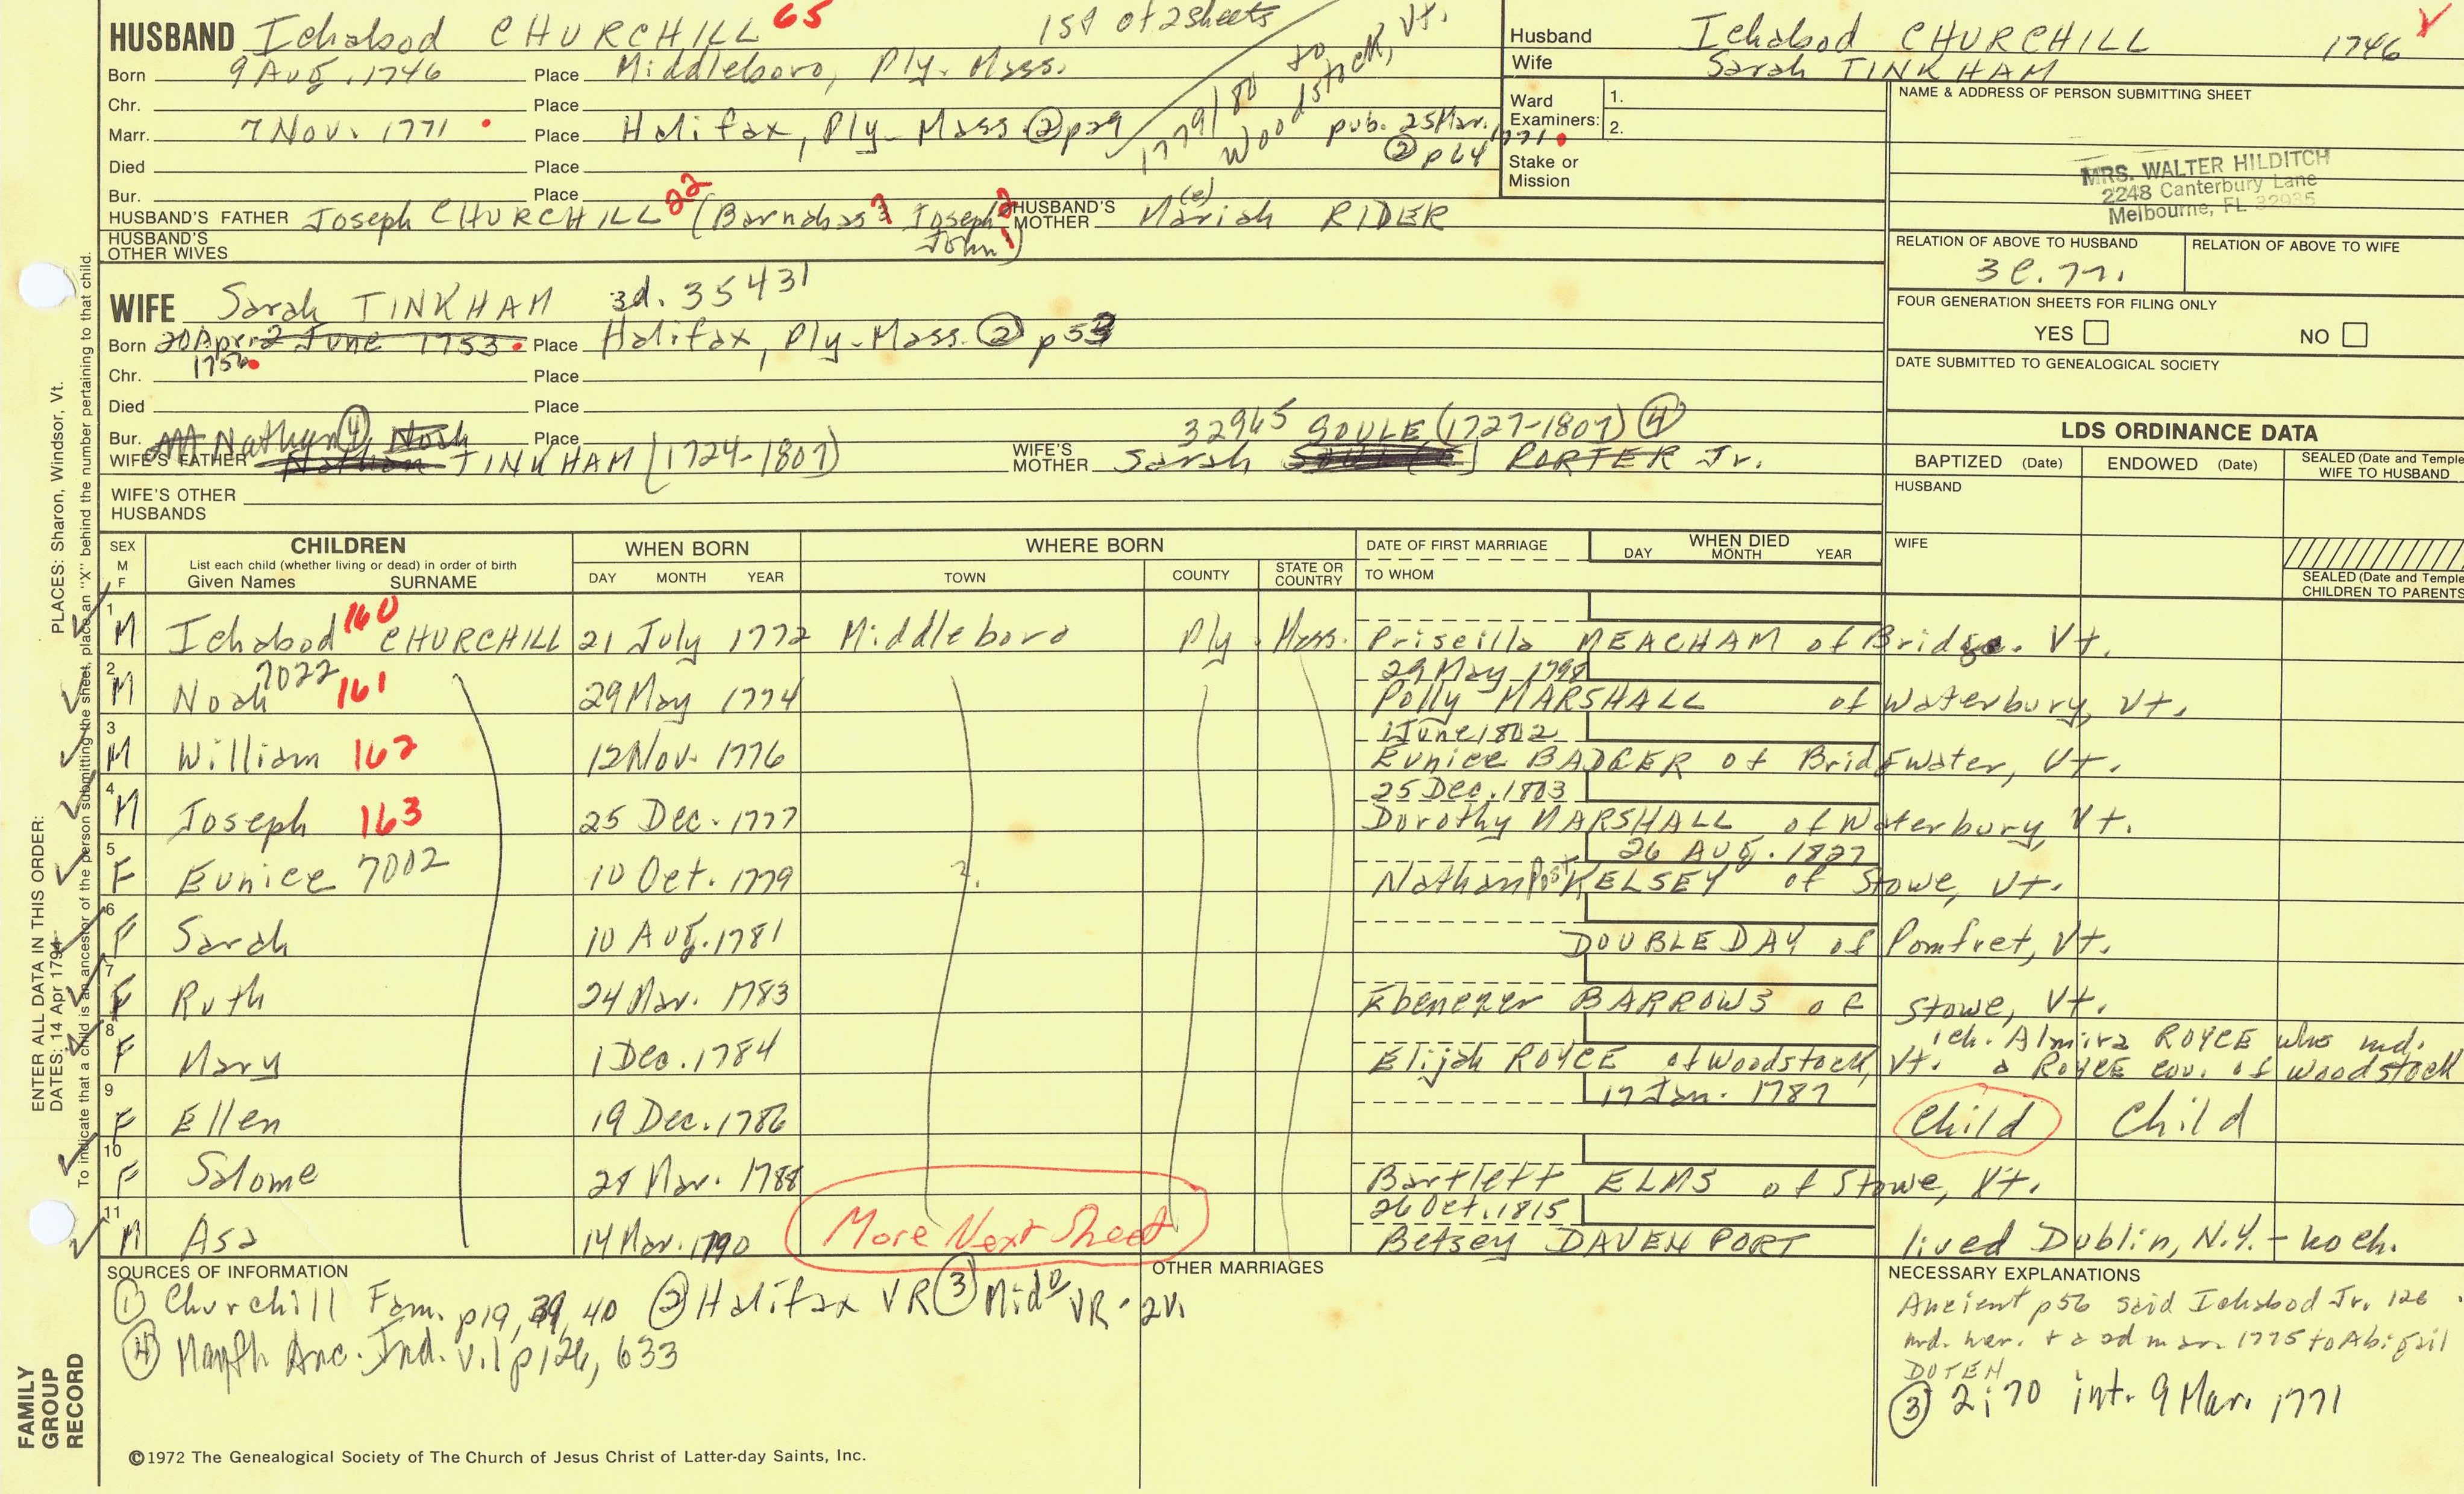 HUSBAND Ichabod CHURCHILL 65 1st of 2 sheets
Born 9 Aug. 1746 Place Middleboro, Ply. Mass.
Chr. Place
Marr. 7 Nov. 1771 Place Halifax, Ply-Mass ② p29
1779/80 to Woodstock, Vt.
pub. 25 Mar. 1771
② p64
Died Place
Bur. Place
HUSBAND'S FATHER Joseph CHURCHILL 22 (Barnabas 3 Joseph 2 John 1) HUSBAND'S MOTHER Mariah (e) RIDER
HUSBAND'S OTHER WIVES
Husband Ichabod CHURCHILL 1746
Wife Sarah TINKHAM
Ward Examiners: 1. 2.
Stake or Mission
NAME & ADDRESS OF PERSON SUBMITTING SHEET
MRS. WALTER HILDITCH
2248 Canterbury Lane
Melbourne, FL 32935
RELATION OF ABOVE TO HUSBAND RELATION OF ABOVE TO WIFE
FOUR GENERATION SHEETS FOR FILING ONLY
YES NO
DATE SUBMITTED TO GENEALOGICAL SOCIETY
WIFE Sarah TINKHAM 3d. 35431
Born 20 Apr 2 June 1753 Place Halifax, Ply-Mass. ② p53
1756
Chr. Place
Died Place
Bur. Place
Nathan ④ Noah
32965 SOULE (1727-1807) ④
WIFE'S FATHER Nathan TINKHAM (1724-1807) WIFE'S MOTHER Sarah PORTER Jr.
WIFE'S OTHER HUSBANDS
LDS ORDINANCE DATA
BAPTIZED (Date) ENDOWED (Date) SEALED (Date and Temple WIFE TO HUSBAND
HUSBAND
WIFE
SEALED (Date and Temple CHILDREN TO PARENTS
SEX M F CHILDREN WHEN BORN WHERE BORN DATE OF FIRST MARRIAGE WHEN DIED
List each child (whether living or dead) in order of birth
Given Names SURNAME DAY MONTH YEAR TOWN COUNTY STATE OR COUNTRY TO WHOM DAY MONTH YEAR
1 M Ichabod 160 CHURCHILL 21 July 1772 Middleboro Ply. Mass. Priscilla MEACHAM of Bridge. Vt.
2 M Noah 7022 161 29 May 1774 29 May 1798 Polly MARSHALL of Waterbury, Vt.
3 M William 162 12 Nov. 1776 1 June 1802 Eunice BADGER of Bridgwater, Vt.
4 M Joseph 163 25 Dec. 1777 25 Dec. 1803 Dorothy MARSHALL of Waterbury, Vt.
5 F Eunice 7002 10 Oct. 1779 ?. 26 Aug. 1827 Nathan Post KELSEY of Stowe, Vt.
6 F Sarah 10 Aug. 1781 DOUBLEDAY of Pomfret, Vt.
7 F Ruth 24 Mar. 1783 Ebenezer BARROWS of Stowe, Vt.
8 F Mary 1 Dec. 1784 Elijah ROYCE of Woodstock, Vt.
1ch. Almira ROYCE who md. a ROYCE cou. of Woodstock
9 F Ellen 19 Dec. 1786 17 Jan. 1787 Child Child
10 F Salome 28 Mar. 1788 Bartlett ELMS of Stowe, Vt.
11 M Asa 14 Mar. 1790 More Next Sheet 26 Oct. 1815 Betsey DAVENPORT lived Dublin, N.Y. - no ch.
SOURCES OF INFORMATION
① Churchill Fam. p19, 39, 40 ② Halifax VR ③ Midº VR - 2v.
④ Mayfl Anc. Ind. v.1 p126, 633
OTHER MARRIAGES
NECESSARY EXPLANATIONS
Ancient p56 said Ichabod Jr. 126
md. her. + a 2d mar. 1775 to Abigail
DOTEN
③ 2;70 int. 9 Mar. 1771
©1972 The Genealogical Society of The Church of Jesus Christ of Latter-day Saints, Inc.
FAMILY GROUP RECORD
ENTER ALL DATA IN THIS ORDER:
DATES: 14 Apr 1794
PLACES: Sharon, Windsor, Vt.
To indicate that a child is an ancestor of the person submitting the sheet, place an "X" behind the number pertaining to that child.